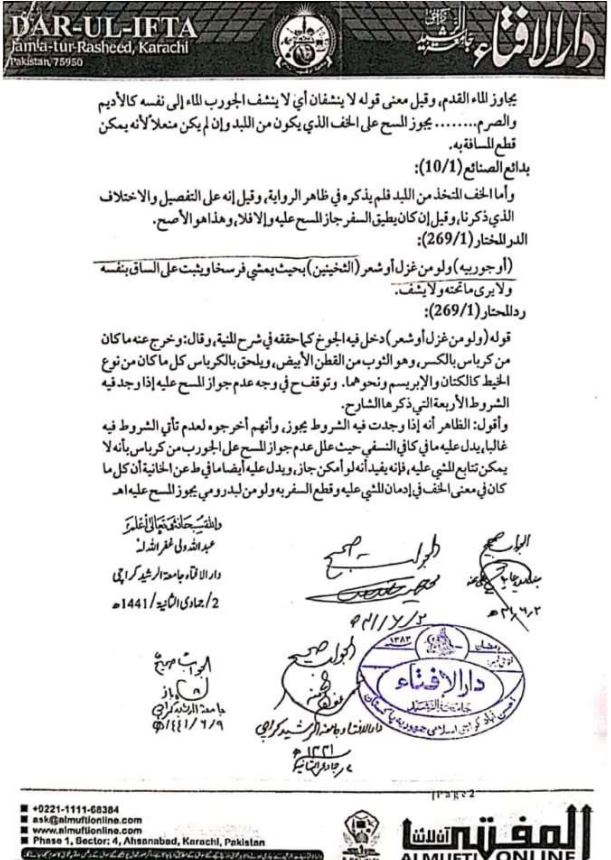 DAR-UL-IFTA
Jamia-tur-Rasheed, Karachi
Pakistan, 75950
دارالافتاء
جامعۃ الرشید
کراچی
يجاوز الماء القدم، وقيل معنى قوله لا ينشفان أي لا ينشف الجورب الماء إلى نفسه كالأديم
والصرم........ يجوز المسح على الخف الذي يكون من اللبد وإن لم يكن منعلاً لأنه يمكن
قطع المسافة به.
بدائع الصنائع (10/1):
وأما الخف المتخذ من اللبد فلم يذكره في ظاهر الرواية، وقيل إنه على التفصيل والاختلاف
الذي ذكرنا، وقيل إن كان يطيق السفر جاز المسح عليه وإلا فلا، وهذا هو الأصح.
الدر المختار (269/1):
(أو جوربيه) ولو من غزل أو شعر (الثخينين) بحيث يمشي فرسخا ويثبت على الساق بنفسه
ولا يرى ما تحته ولا يشف.
رد المحتار (269/1):
قوله (ولو من غزل أو شعر) دخل فيه الجوخ كما حققه في شرح المنية، وقال: وخرج عنه ما كان
من كرباس بالكسر، وهو الثوب من القطن الأبيض، ويلحق بالكرباس كل ما كان من نوع
الخيط كالكتان والإبريسم ونحوهما. وتوقف ح في وجه عدم جواز المسح عليه إذا وجد فيه
الشروط الأربعة التي ذكرها الشارح.
وأقول: الظاهر أنه إذا وجدت فيه الشروط يجوز، وأنهم أخرجوه لعدم تأتي الشروط فيه
غالبا، يدل عليه ما في كافي النسفي حيث علل عدم جواز المسح على الجورب من كرباس بأنه لا
يمكن تتابع المشي عليه، فإنه يفيد أنه لو أمكن جاز، ويدل عليه أيضا ما في ط عن الخانية أن كل ما
كان في معنى الخف في إدمان المشي عليه وقطع السفر به ولو من لبد رومي يجوز المسح عليه اهـ
واللہ سبحانہ وتعالیٰ اعلم
عبداللہ ولی غفر اللہ لہ
دارالافتاء جامعۃ الرشید کراچی
2/جمادی الثانیۃ/1441ھ
الجواب صحیح
الجواب صحیح
الجواب صحیح
دارالافتاء جامعۃ الرشید کراچی
الجواب صحیح
جامعۃ الرشید کراچی
۱۴۴۱/۶/۹ھ
دارالافتاء
جامعۃ الرشید
احسن آباد کراچی اسلامی جمہوریہ پاکستان
۱۳۸۳
رمضان
| P a g e 2
+0221-1111-68384
ask@almuftionline.com
www.almuftionline.com
Phase 1, Sector: 4, Ahsanabad, Karachi, Pakistan
المفتی آن لائن
ALMUFTI ONLINE